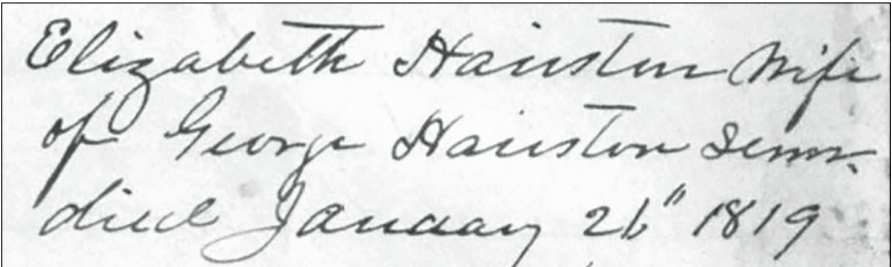 Elizabeth Hairston Wife
of George Hairston Senr.
died January 26" 1819